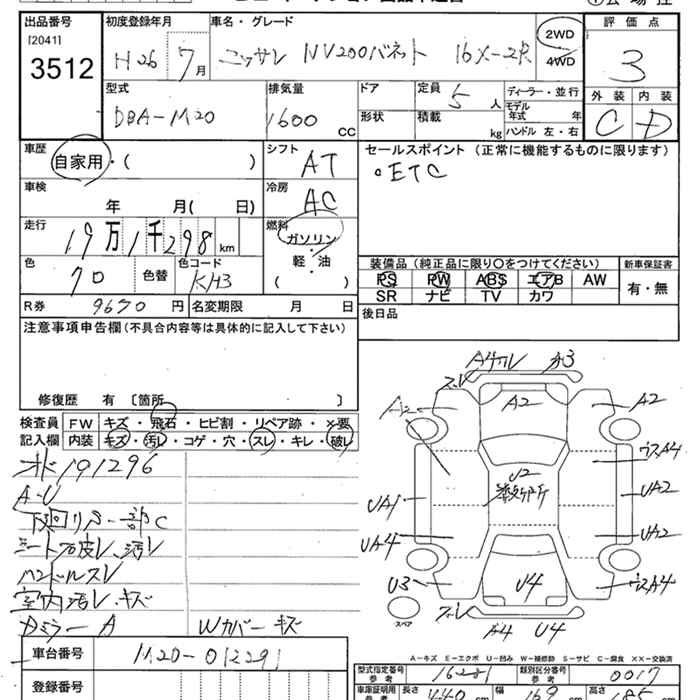 出品番号 初度登録年月 車名・グレード 2WD 評価点
[2041] 3512 H26 7月 ニッサン NV200バネット 16X-2R 4WD 3
型式 排気量 ドア 定員 5人 ディーラー・並行 外装 内装
DBA-M20 1600 CC 形状 積載 kg モデル年式 年 ハンドル 左・右 C D
車歴 自家用・( ) シフト AT セールスポイント (正常に機能するものに限ります)
・ETC
車検 年 月( 日) 冷房 AC
走行 19万1千298km 燃料 ガソリン・軽・油 ( )
色 色替 色コード KH3
装備品 (純正品に限り○をつけてください) 新車保証書
PS PW ABS エアB AW 有・無
SR ナビ TV カワ
R券 9670円 名変期限 月 日 後日品
注意事項申告欄 (不具合内容等は具体的に記入して下さい)
修復歴 有 [箇所 ]
検査員 FW キズ・飛石・ヒビ割・リペア跡・×要
記入欄 内装 キズ・汚レ・コゲ・穴・スレ・キレ・破レ
191296
A-U
下回りS一部C
シート 汚レ
ハンドルスレ
室内汚レ.キズ
A Wカバーキズ
A3
ズレ
A2 A2 A2
ウスA4
U2
UA1 UA2
UA4 UA2
U3 U4 ウスA4
スペア ズレ
A4 U4
A-キズ E-エクボ U-凹み W-補修跡 S-サビ C-腐食 XX-交換済
車台番号 M20-012291
型式指定番号 参考 16281 類別区分番号 参考 0017
登録番号 車庫証明用 参考 長さ 440cm 幅 169cm 高さ 185cm